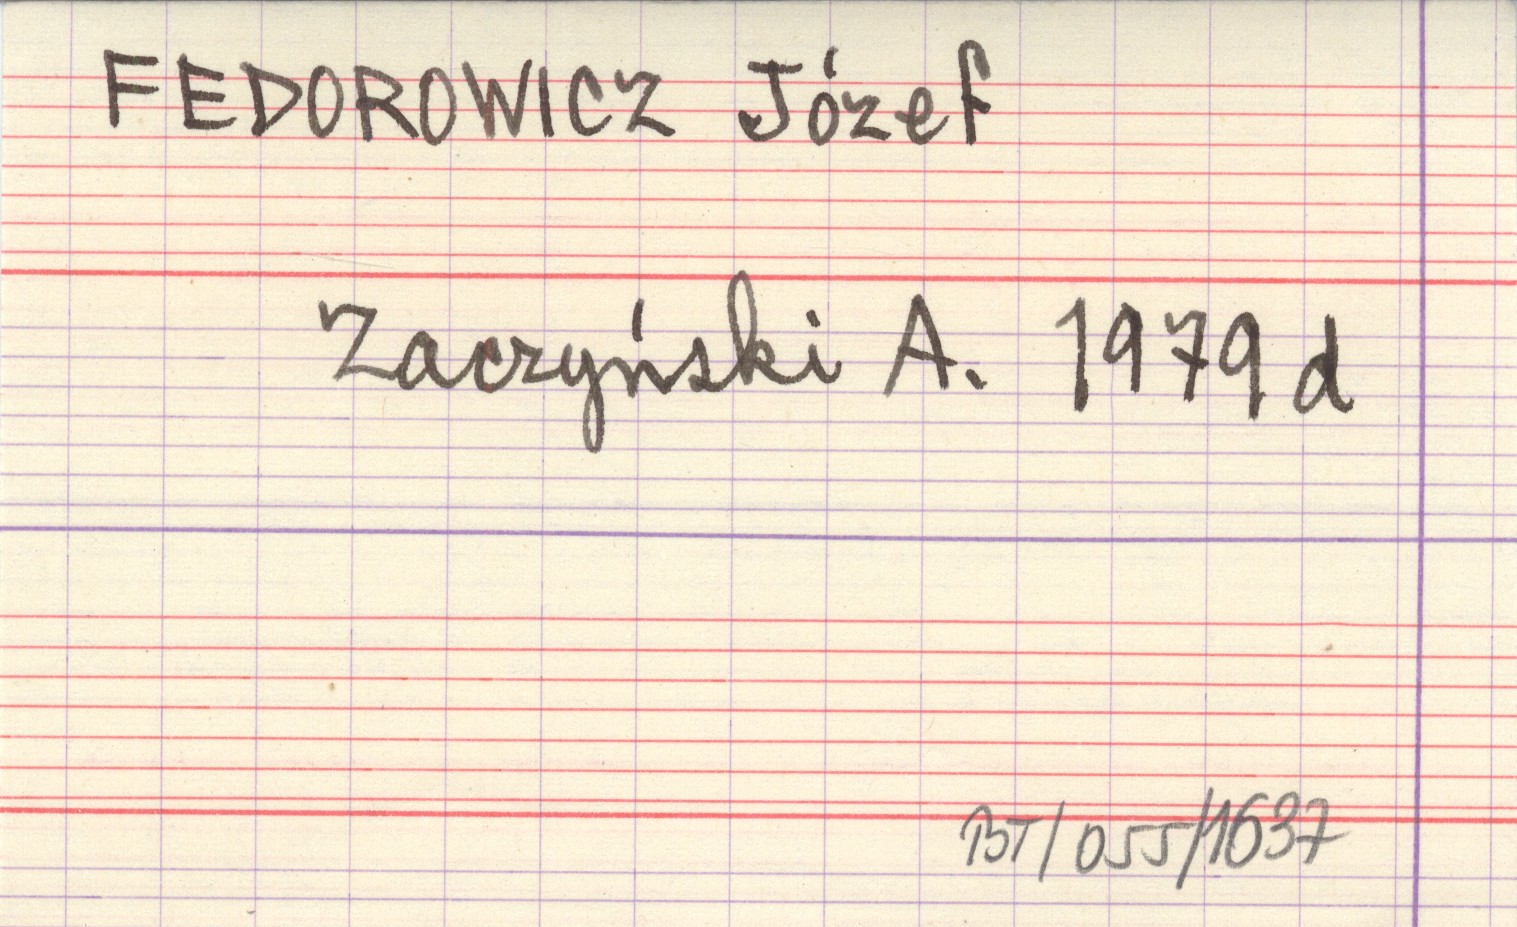 FEDOROWICZ Józef
Zaczyński A. 1979 d
BT/055/1637